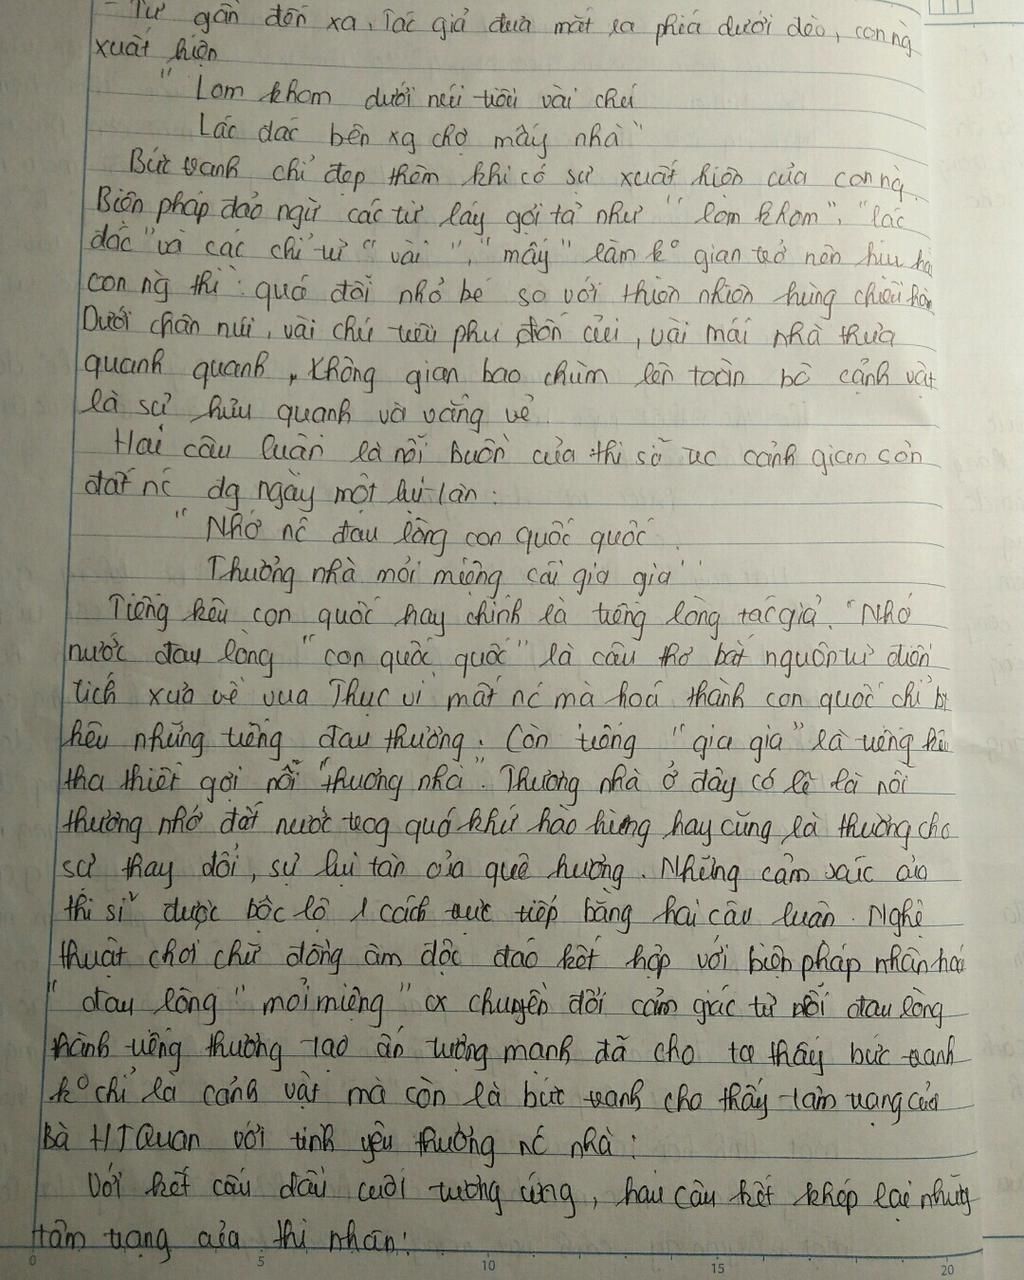 - Từ gần đến xa, tác giả đưa mắt ra phía dưới đèo, con ng
xuất hiện
" Lom khom dưới núi tiều vài chú
Lác đác bên sông chợ mấy nhà"
Bức tranh chỉ đẹp thêm khi có sự xuất hiện của con ng.
Biện pháp đảo ngữ các từ láy gợi tả như "lom khom", "lác
đác" và các chỉ từ "vài", "mấy" làm k° gian trở nên hiu
con ng thì quá đỗi nhỏ bé so với thiên nhiên hùng
Dưới chân núi, vài chú tiều phu đốn củi, vài mái nhà thưa
quanh quanh, không gian bao chùm lên toàn bộ cảnh vật
là sự hiu quanh và vắng vẻ.
Hai câu luận là nỗi buồn của thi sĩ cảnh giang sơn
đất nc đg ngày một lụi tàn:
" Nhớ nc đau lòng con quốc quốc
Thương nhà mỏi miệng cái gia gia"
Tiếng kêu con quốc hay chính là tiếng lòng tác giả. "Nhớ
nước đau lòng "con quốc quốc" là câu thơ bắt nguồn từ điển
tích xưa về vua Thục vì mất nc mà hoá thành con quốc chỉ bt
kêu những tiếng đau thương. Còn tiếng "gia gia" là tiếng kêu
tha thiết gợi nỗi "thương nhà". Thương nhà ở đây có lẽ là nỗi
thương nhớ đất nước trog quá khứ hào hùng hay cũng là thương cho
sự thay đổi, sự lụi tàn của quê hương. Những cảm xúc của
thi sĩ được bộc lộ 1 cách trực tiếp bằng hai câu luận. Nghệ
thuật chơi chữ đồng âm độc đáo kết hợp với biện pháp nhân hoá
" đau lòng" "mỏi miệng" chuyển đổi cảm giác từ nỗi đau lòng
thành tiếng thương tạo ấn tượng mạnh đã cho ta thấy bức tranh
k° chỉ là cảnh vật mà còn là bức tranh cho thấy tâm trạng của
Bà HTQuan với tình yêu thương nc nhà!
Với kết cấu đầu cuối tương ứng, hai câu kết khép lại những
tâm trạng của thi nhân!
0 5 10 15 20